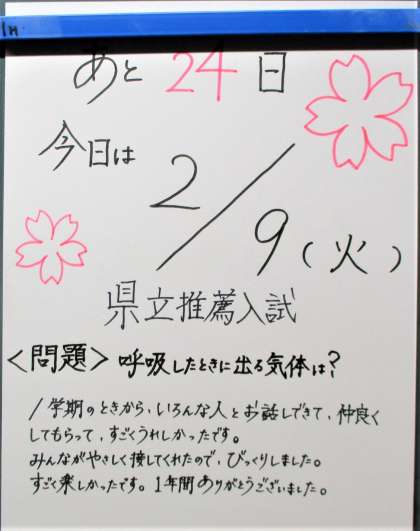 あと 24 日
今日は 2/9(火)
県立推薦入試
<問題> 呼吸したときに出る気体は?
1学期のときから、いろんな人とお話しできて、仲良く
してもらって、すごくうれしかったです。
みんながやさしく接してくれたので、びっくりしました。
すごく楽しかったです。1年間ありがとうございました。